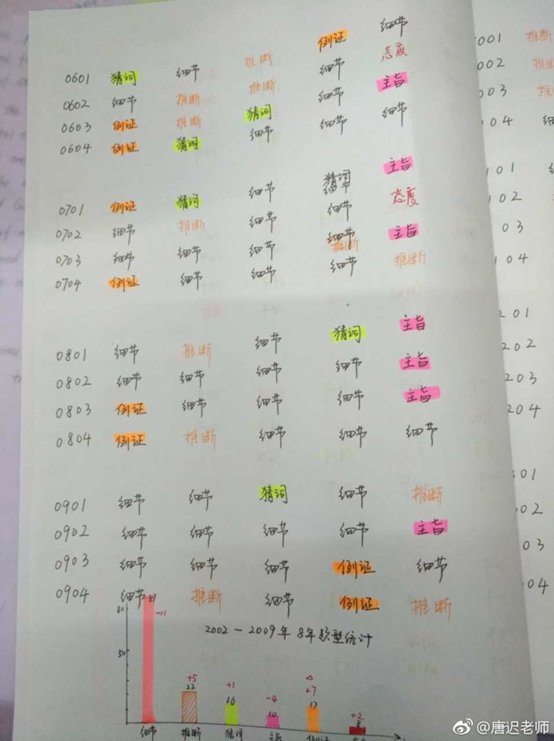 0601 猜词 细节 推断 例证 细节
0602 细节 推断 推断 细节 态度
0603 例证 推断 猜词 细节 主旨
0604 例证 猜词 细节 细节 细节
0701 例证 猜词 细节 猜词 主旨
0702 细节 推断 细节 细节 态度
0703 细节 细节 细节 细节 主旨
0704 例证 细节 细节 细节 推断
0801 细节 推断 细节 猜词 主旨
0802 细节 细节 细节 细节 主旨
0803 例证 细节 细节 细节 主旨
0804 例证 推断 细节 细节 细节
0901 细节 细节 猜词 细节 推断
0902 细节 细节 细节 细节 主旨
0903 细节 细节 细节 例证 细节
0904 细节 推断 细节 例证 推断
2002-2009年8年题型统计
-11
50
+5 +1 -4 +7 +2
22 16 10 17
细节 推断 猜词 主旨 例证
001 推断
002 推断
003 推断
004 细节
101
102
103
104
201
202
203
204
01
02
03
04
@唐迟老师